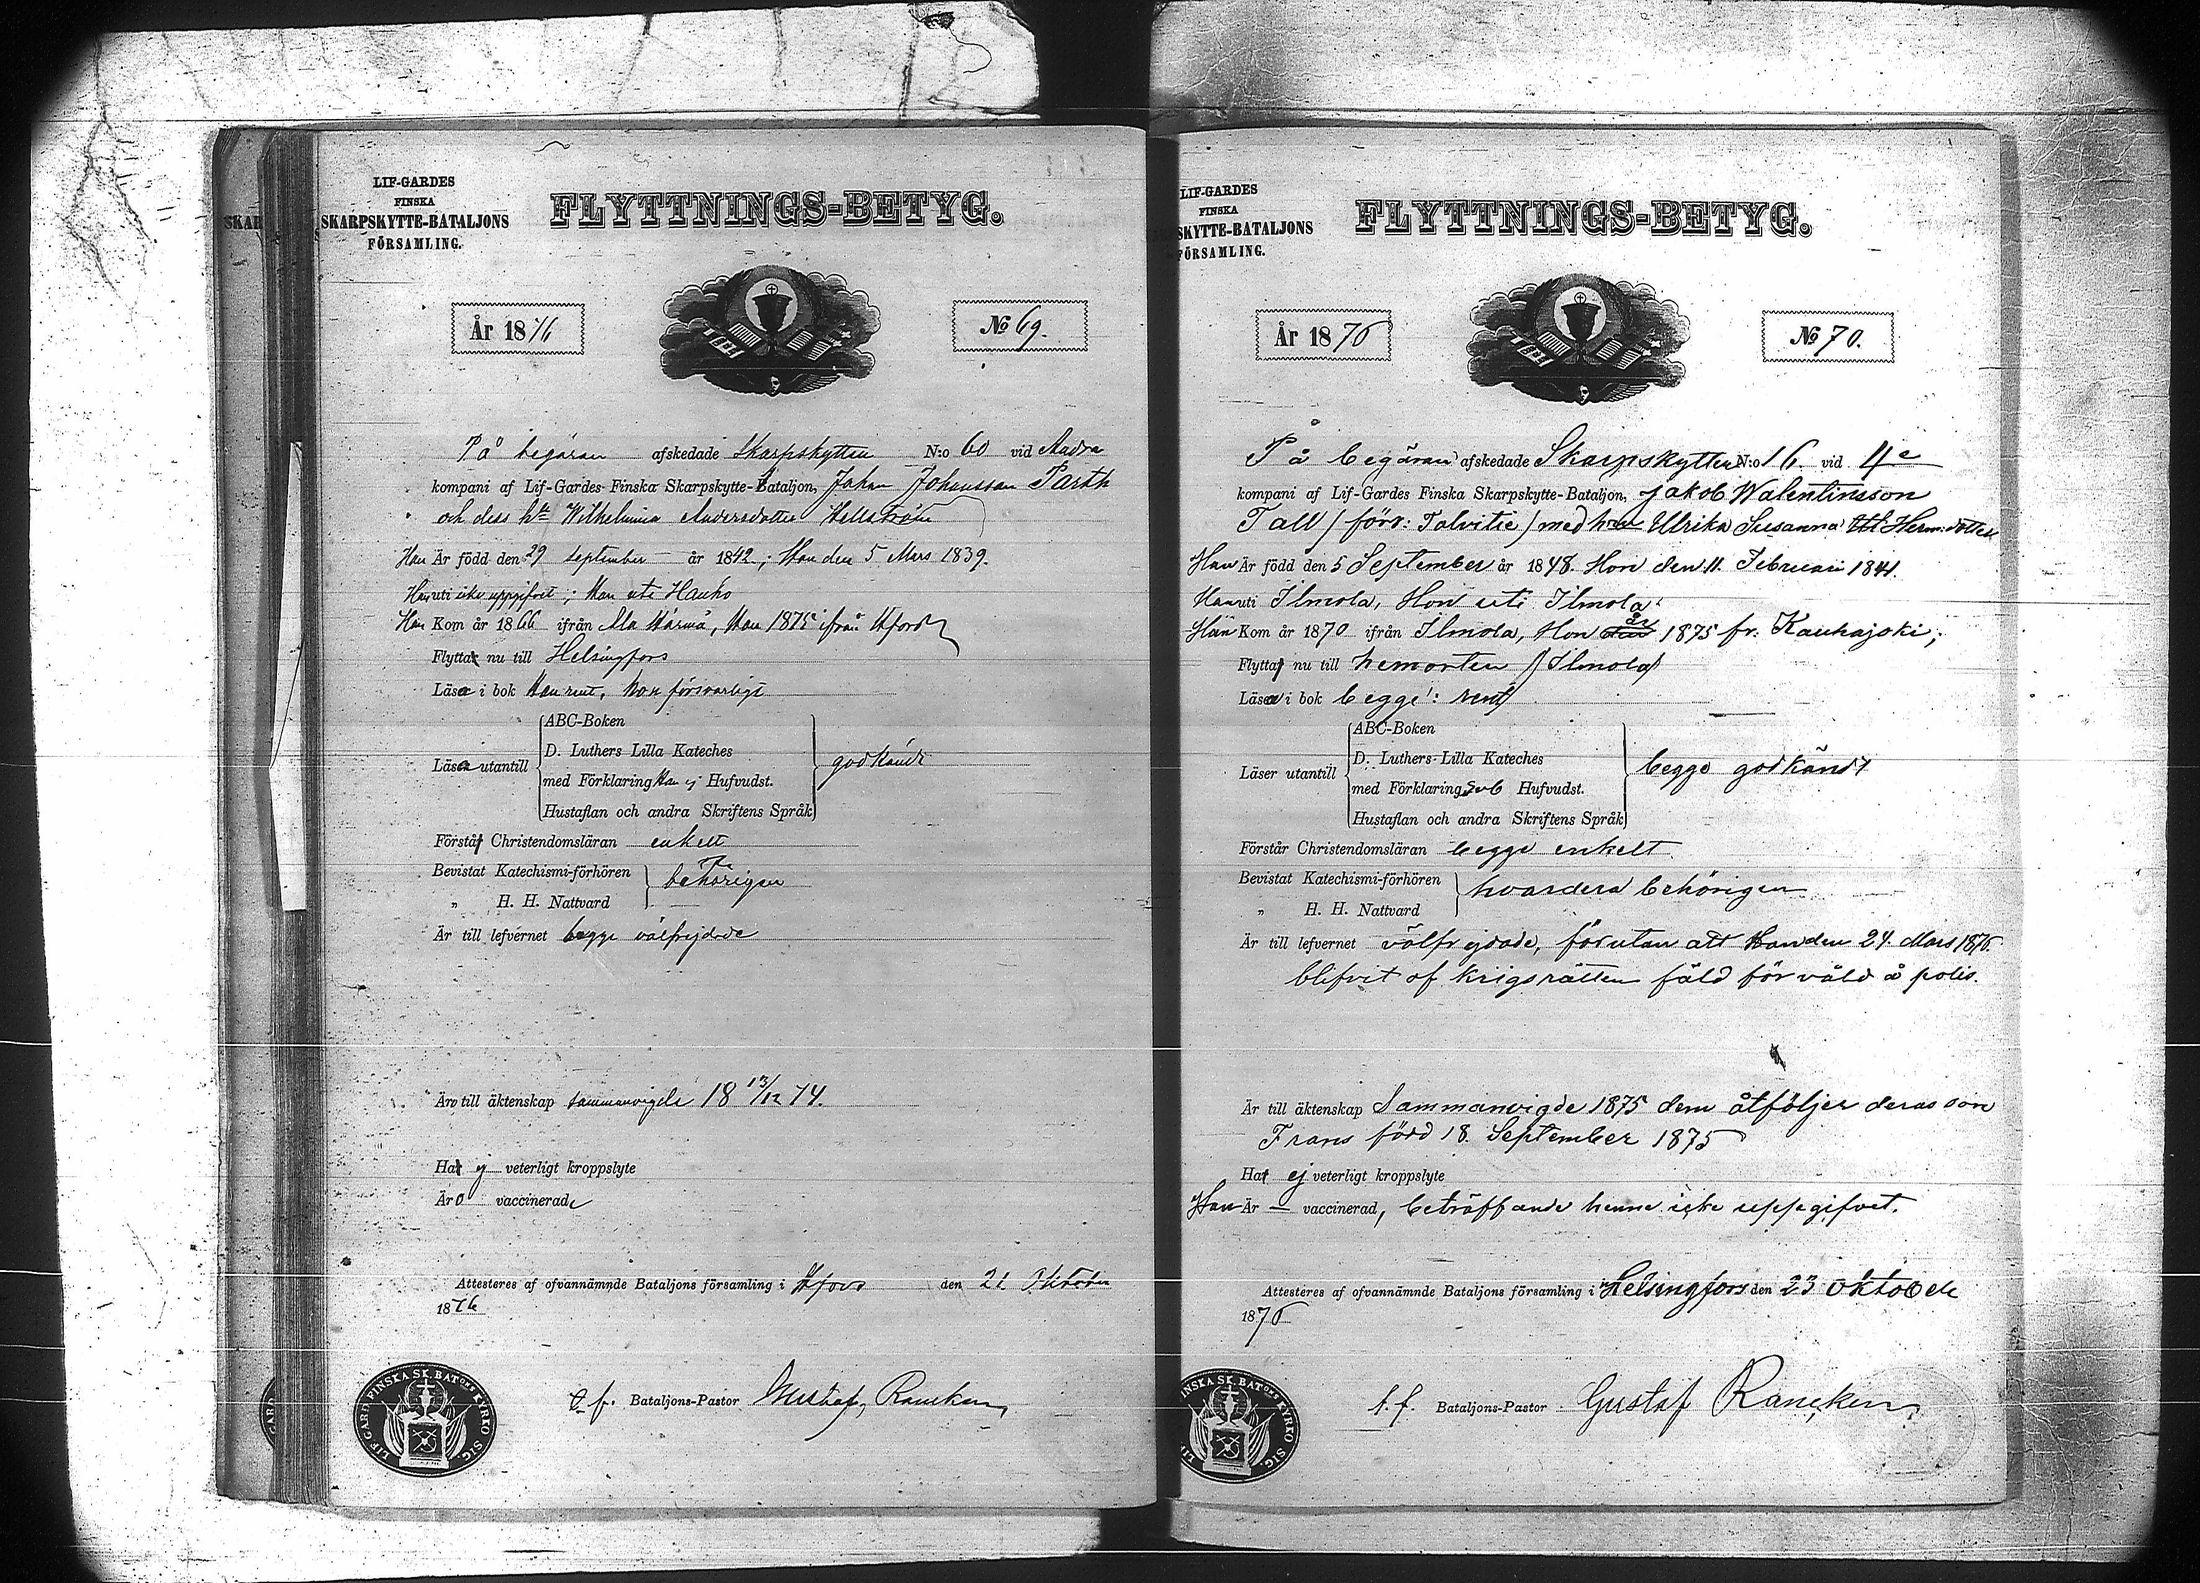 LIF-GARDES
FINSKA
SKARPSKYTTE-BATALJONS
FÖRSAMLING.
FLYTTNINGS-BETYG.
År 1876
No 69.
På begäran afskedade Skarpskytten N:o 60 vid Andra
kompani af Lif-Gardes Finska Skarpskytte-Bataljon, Johan Johansson Parth
och dess h:u Wilhelmina Andersdotter Hellström
Han Är född den 29 september år 1842; Hon den 5 Mars 1839.
Han uti icke uppgifvet; Hon uti Hauho
Han Kom år 1866 ifrån Ala Härmä, Hon 1875 ifrån Hfors
Flytta nu till Helsingfors
Läsa i bok Han rent, hon försvarligt
Läsa utantill
ABC-Boken
D. Luthers Lilla Kateches
med Förklaring Han ej Hufvudst.
Hustaflan och andra Skriftens Språk
godkändt
Förstå Christendomsläran enkelt
Bevistat Katechismi-förhören
„ H. H. Nattvard
behörigen
Är till lefvernet begge välfrejdade
Äro till äktenskap sammanvigde 18 13/12 74.
Ha ej veterligt kroppslyte
Äro vaccinerade
Attesteres af ofvannämnde Bataljons församling i Hfors den 21 Oktober
1876
t. f. Bataljons-Pastor Gustaf Rancken
LIF-GARD. FINSKA SK. BAT:ONS KYRKO SIG.
LIF-GARDES
FINSKA
SKYTTE-BATALJONS
FÖRSAMLING.
FLYTTNINGS-BETYG.
År 1876
No 70.
På begäran afskedade Skarpskytten N:o 16 vid 4e
kompani af Lif-Gardes Finska Skarpskytte-Bataljon, Jakob Walentinsson
Tall / förr: Talvitie / med h:u Ulrika Susanna Herm:dotter
Han Är född den 5 September år 1848. Hon den 11. Februari 1841.
Han uti Ilmola, Hon uti Ilmola
Han Kom år 1870 ifrån Ilmola, Hon år 1875 fr. Kauhajoki;
Flytta nu till hemorten / Ilmola /
Läsa i bok begge: rent
Läser utantill
ABC-Boken
D. Luthers Lilla Kateches
med Förklaring Hufvudst.
Hustaflan och andra Skriftens Språk
begge godkändt
Förstår Christendomsläran begge enkelt
Bevistat Katechismi-förhören
„ H. H. Nattvard
hvardera behörigen
Är till lefvernet välfrejdade, förutan att Han den 24. Mars 1876
blifvit af krigsrätten fäld för våld å polis.
Är till äktenskap Sammanvigde 1875 dem åtföljer deras son
Frans född 18. September 1875
Ha ej veterligt kroppslyte
Han Är — vaccinerad, beträffande henne icke uppgifvet.
Attesteres af ofvannämnde Bataljons församling i Helsingfors den 23 Oktober
1876
t. f. Bataljons-Pastor Gustaf Rancken
INSKA SK. BAT:ONS KYRKO SIG.